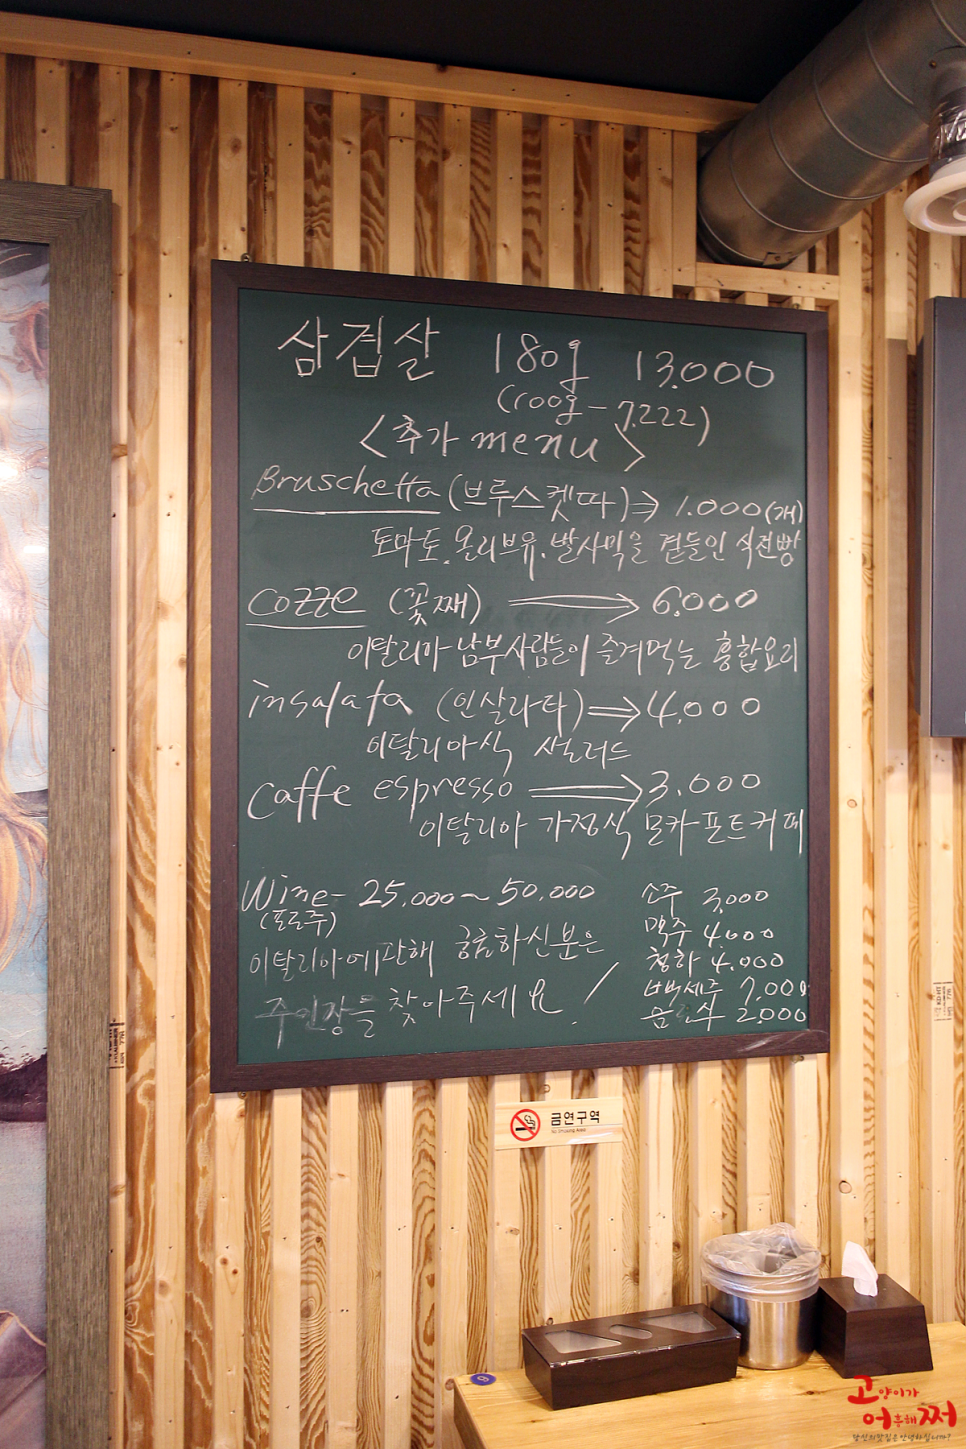 삼겹살 180g 13.000
(100g - 7.222)
<추가 menu>
Bruschetta (브루스켓따) ⇒ 1.000(개)
토마토. 올리브유. 발사믹을 곁들인 식전빵
cozze (꽃째) ⇒ 6,000
이탈리아 남부사람들이 즐겨먹는 홍합요리
insalata (인살라타) ⇒ 4,000
이탈리아식 샐러드
caffe espresso ⇒ 3,000
이탈리아 가정식 모카포트커피
Wine - 25,000 ~ 50,000
(포도주)
이탈리아에관해 궁금하신분은
주인장을 찾아주세요!
소주 3,000
맥주 4000
청하 4.000
백세주 7.000
음료수 2,000
금연구역
No smoking Area
고양이가
어흥해쩌
당신의맛집은안녕하십니까?